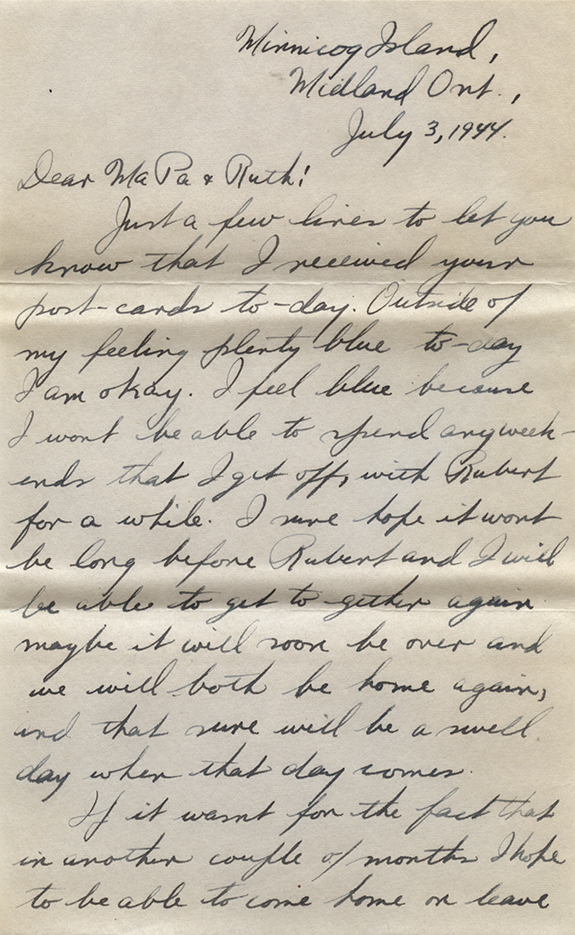 Minnicog Island,
Midland Ont.,
July 3, 1944.
Dear Ma Pa & Ruth!
Just a few lines to let you
know that I received your
post-cards to-day. Outside of
my feeling plenty blue to-day
I am okay. I feel blue because
I wont be able to spend any week-
ends that I get off, with Rubert
for a while. I sure hope it wont
be long before Rubert and I will
be able to get to gether again
maybe it will soon be over and
we will both be home again,
and that sure will be a swell
day when that day comes.
If it wasnt for the fact that
in another couple of months I hope
to be able to come home on leave